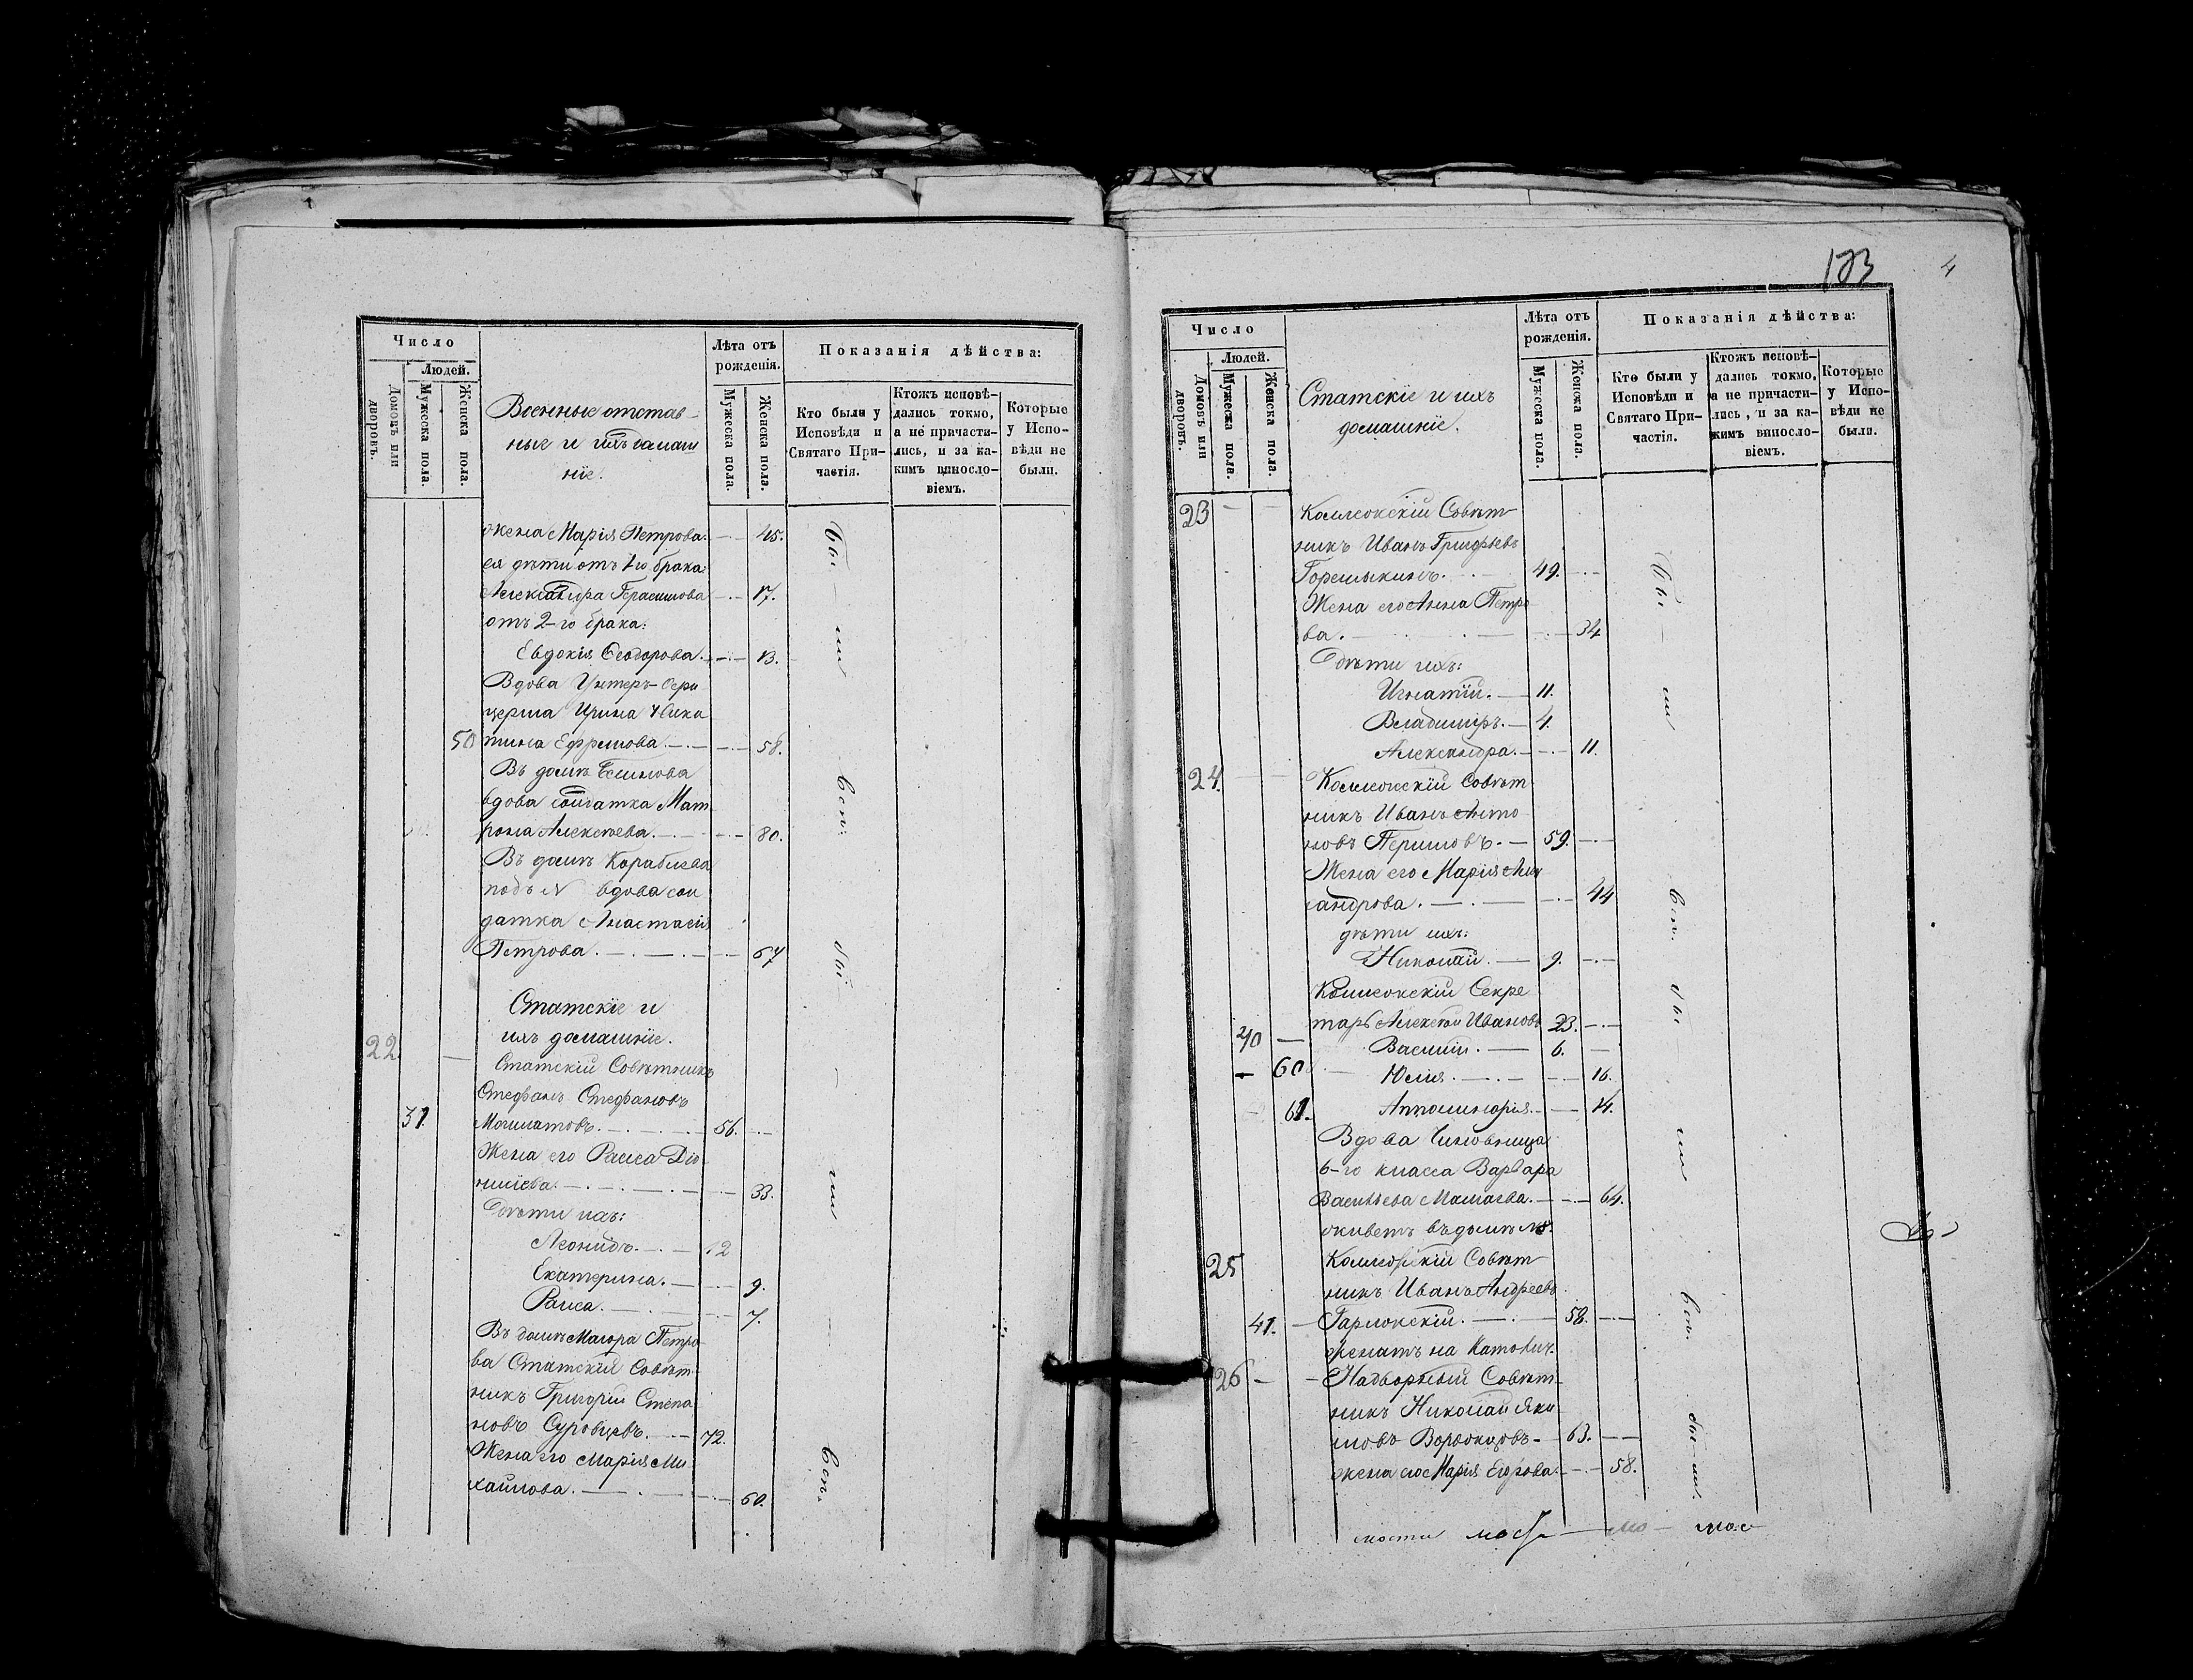 Число
Людей.
Домовъ или дворовъ.
Мужеска пола.
Женска пола.
Военные отстав-
ные и ихъ домаш
ніе.
Лѣта отъ рожденія.
Мужеска пола.
Женска пола.
Показанія дѣйства:
Кто были у Исповѣди и Святаго Причастія.
Ктожъ исповѣ-
дались токмо,
а не причасти-
лись, и за ка-
кимъ винносло-
віемъ.
Которые у Испо-
вѣди не были.
жена Марія Петрова. 45.
ея дѣти отъ 1-го брака:
Александра Герасимова 17.
отъ 2-го брака:
Евдокія Ѳеодорова. 13.
Вдова Унтеръ-Офи
церша Ирина
50 Ефремова 58.
Въ домѣ
вдова солдатка Мат
рона Алексѣева. 80.
Въ домѣ Карабьева
подъ N вдова сол
датка Анастасія
Петрова. 67
Статскіе и
ихъ домашніе.
22. Статскій Совѣтникъ
Стефанъ Стефановъ
31. 56.
Жена его Раиса Діо
нисіева. 33.
Дѣти ихъ:
Леонидъ. 12
Екатерина. 9.
Раиса. 7.
Въ домѣ Маіора Петро
ва Статскій Совѣт-
никъ Григорій Степа
новъ Суровцевъ. 72.
Жена его Марія Ми
хайлова. 60.
бы – ли
исп.
бы –
ли
исп.
173
4
Число
Людей.
Домовъ или дворовъ.
Мужеска пола.
Женска пола.
Статскіе и ихъ
домашніе.
Лѣта отъ рожденія.
Мужеска пола.
Женска пола.
Показанія дѣйства:
Кто были у Исповѣди и Святаго Причастія.
Ктожъ исповѣ-
дались токмо,
а не причасти-
лись, и за ка-
кимъ винносло-
віемъ.
Которые у Испо-
вѣди не были.
23 Коллежскій Совѣт
никъ Иванъ Григорьевъ
Горемыкинъ. 49.
Жена его Анна Петро
ва. 34
Дѣти ихъ:
Игнатій. 11.
Владиміръ. 4.
Александра. 11.
24. Коллежскій Совѣт
никъ Иванъ Анто
новъ Перловъ. 59.
Жена его Марія
сандрова. 44
дѣти ихъ:
Николай. 9.
Коллежскій Секре
тарь Алексѣй Ивановъ 23.
40 Василій. 6.
60 Юлія. 16.
61. Апполинарія. 14.
Вдова Чиновница
6-го класса Варвара
Васильева 64.
живетъ въ домѣ №.
25 Коллежскій Совѣт
никъ Иванъ Андреевъ
41. 58.
женатъ на Католич.
26 Надворный Совѣт-
никъ Николай Яки
мовъ 63.
жена его Марія Егорова. 58.
бы – ли
исп.
бы
ли
исп.
бы – ли.